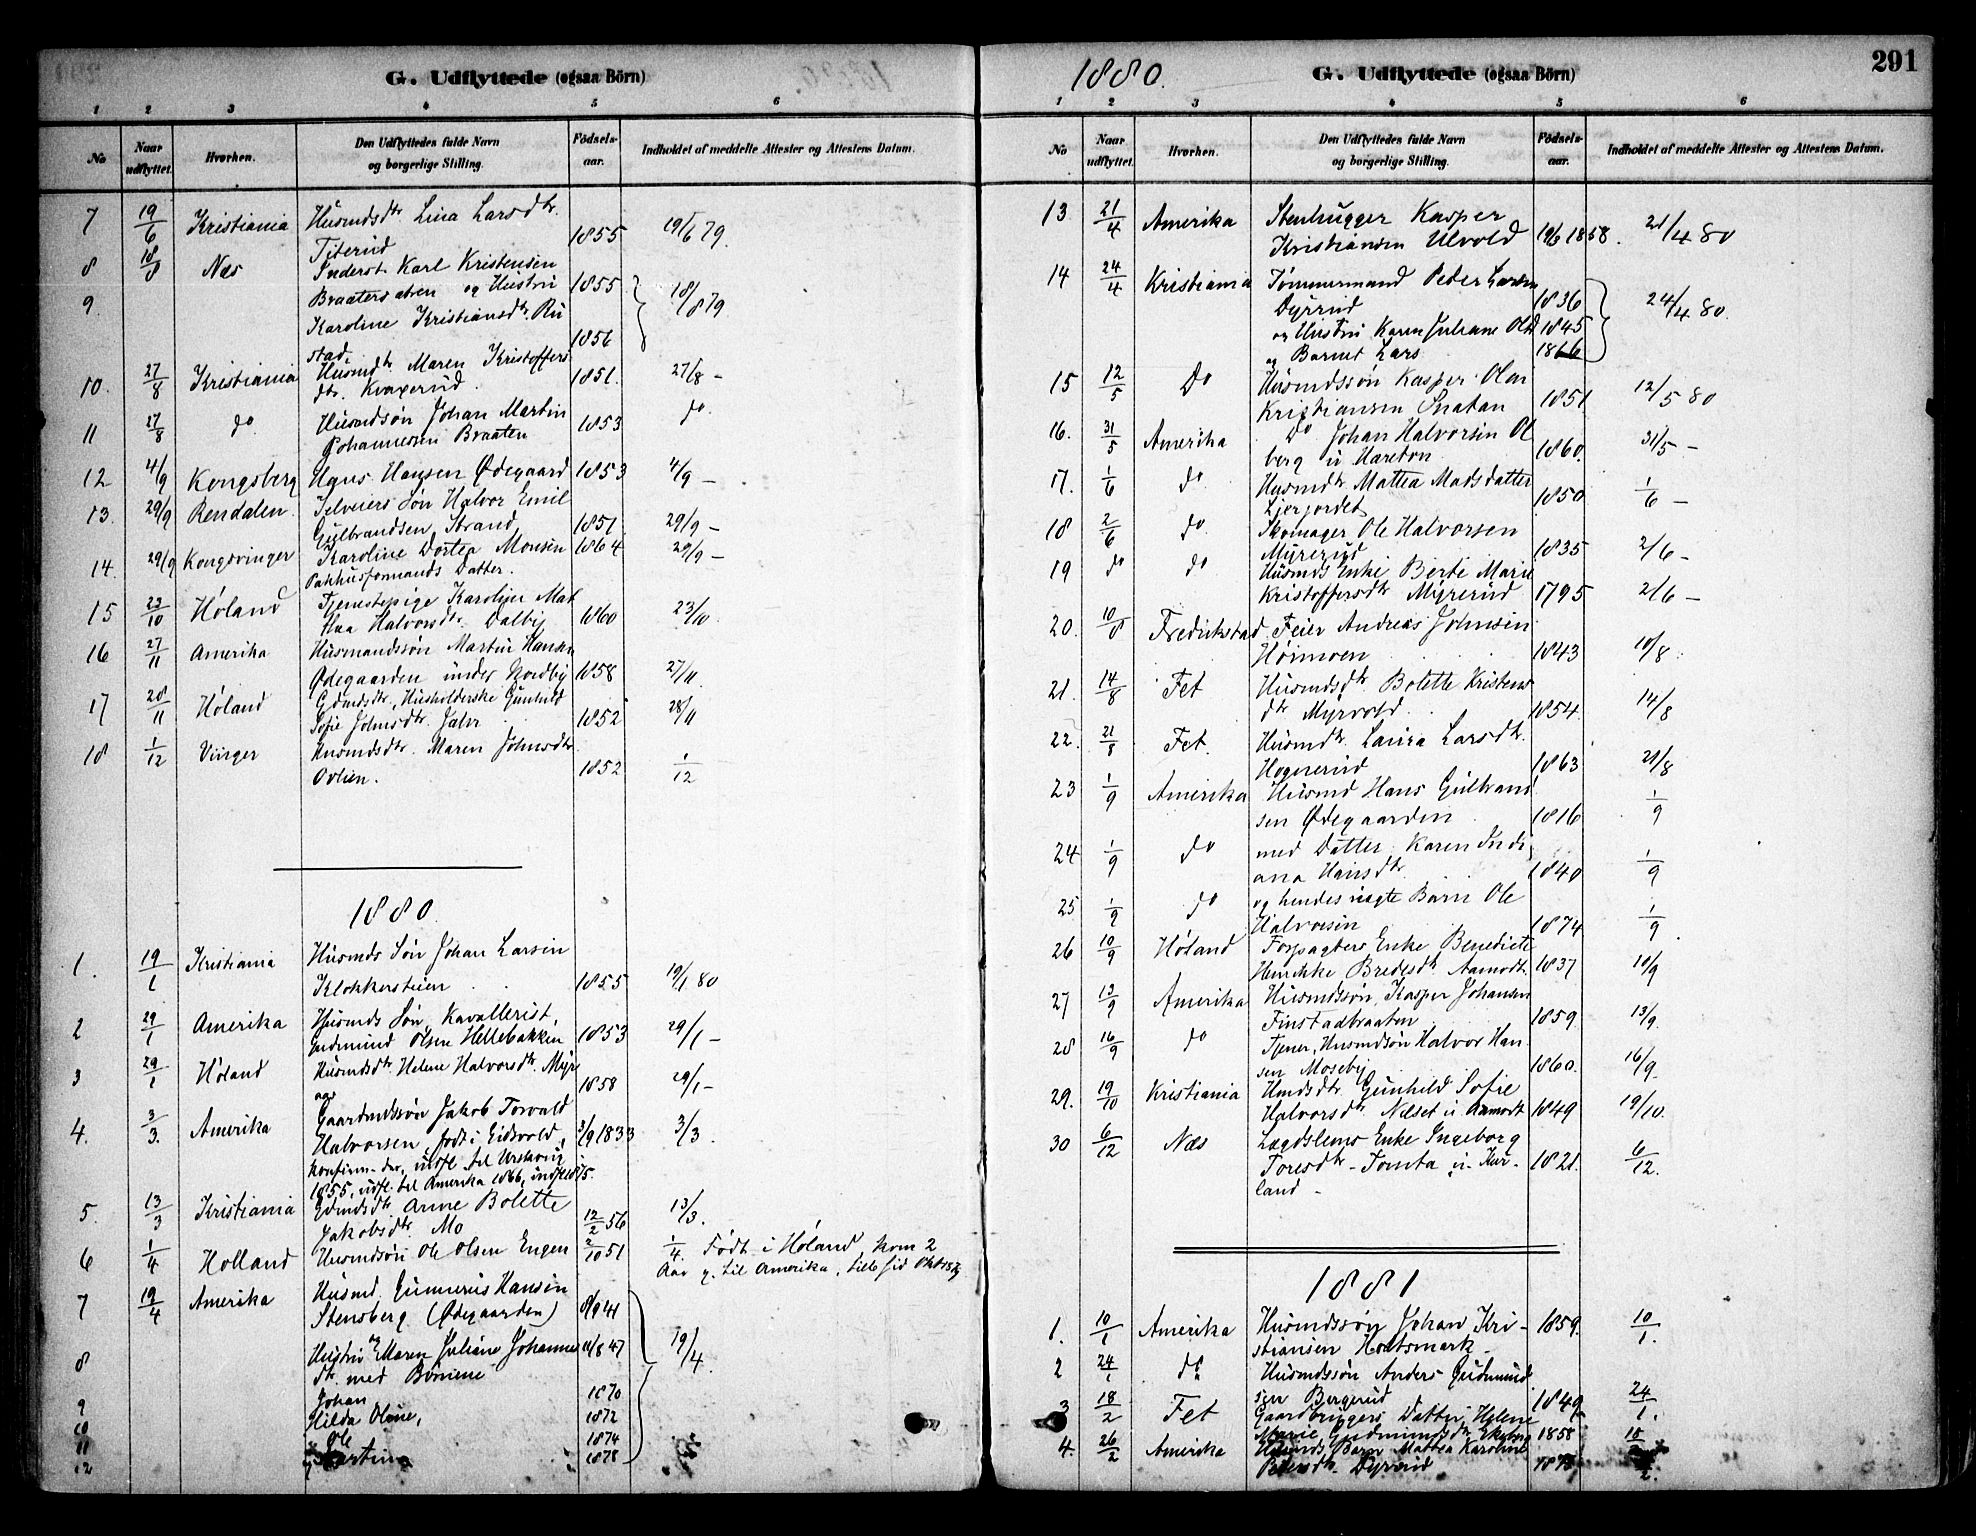 G. Udflyttede (ogsaa Börn)
1 2 3 4 5 6
No Naar udflyttet. Hvorhen. Den Udflyttedes fulde Navn og borgerlige Stilling. Födsels-aar. Indholdet af meddelte Attester og Attestens Datum.
7 19/6 Kristiania Husmdsdtr Lina Larsdtr.
Titerud 1855 19/6 79.
8 18/8 Næs Inderst Karl Kristensen
Braatersaten og Hustru 1855
9 Karoline Kristiansdtr. Ru 18/8 79
stad. 1856
10. 27/8 Kristiania Husmdtr Maren Kristoffers
dtr. Kvaperud. 1851. 27/8 –
11 27/8 do Husmdsøn Johan Martin
Johannesen Braaten 1853 do.
12 4/9 Kongsberg Hans Hansen Ødegaard 1853 4/9 –
13. 29/9 Rendalen Selveiers Søn Halvor Emil
Gulbrandsen, Strand 1851 29/9 –
14. 29/9 Kongsvinger Karoline Dortea Monsen 1864 29/9 –
Pakhusformands Datter.
15 23/10 Høland Tjenestepige Karoline Mat
thea Halvorsdtr. Dalby 1860 23/10.
16 27/11 Amerika Husmandssøn Martin Hansen
Ødegaarden under Nordby 1858 27/11.
17 28/11 Høland Gdmdsdtr, Husholderske Gunhild
Sofie Johnsdtr. 1852 28/11
18 1/12 Vinger Husmdsdtr. Maren Johnsdtr
Ovlien. 1852 1/12
1880.
1. 19/1 Kristiania Husmds Søn Johan Larsen
Klokkersteien 1855 19/1 80
2 29/1 Amerika Husmds Søn, Kavallerist,
Gudmund Olsen Hellebakken 1853 29/1 –
3 29/1 Høland Husmdsdtr. Helene Halvorsdtr. Myr
1858 29/1 –
4. 3/3. Amerika Gaardmdssøn Jakob Torvald
Halvorsen, født i Eidsvold, 3/9 1833 3/3.
konfirm. der, indfl. til Urskoug
1855, udfl. til Amerika 1866, indfl. 1875.
5. 13/3 Kristiania Gdmdsdtr Anne Bolette
Jakobsdtr. Mo 12/2 56 13/3.
6 1/4 Holland Husmdsøn Ole Olsen Engen 2/10 51 1/4. Født i Høland, kom 2
Aar g. til Amerika, tilb sid Okt 1879
7 19/4 Amerika Husmd. Gunnerus Hansen
Stensberg (Ødegaarden) 8/9 41
8 Hustru Maren Juliane Johannes 11/8 47 19/4.
dtr. med Børnene
9 Johan 1870
10 Hilda Oline, 1872
11 Ole 1874
12 og Martina 1878
1880. G. Udflyttede (ogsaa Börn) 291
1 2 3 4 5 6
No Naar udflyttet. Hvorhen. Den Udflyttedes fulde Navn og borgerlige Stilling. Födsels-aar. Indholdet af meddelte Attester og Attestens Datum.
13 21/4 Amerika Stenhugger Kasper
Kristiansen Ulvold 19/6 1858. 21/4 80
14 24/4 Kristiania Tømmermand Peder Larsen
Dyrrud 1836 24/4 80.
og Hustru Karen Juliane Olsd 1845
og Barnet Lars 1866
15 12/5 Do Husmdssøn Kasper Olai
Kristiansen Snatan 1851 12/5 80
16. 31/5 Amerika Do Johan Halvorsen Ol
berg u Hareton 1860. 31/5 –
17. 1/6 do Husmdtr Mattea Madsdatter
Lierjordet 1850 1/6 –
18 2/6 do. Skomager Ole Halvorsen
Myrerud 1835 2/6 –
19 do do Husmds Enke Berte Marie
Kristoffersdtr Myrerud 1795 2/6 –
20. 10/8 Fredrikstad Feier Andreas Johnsen
Høimoen 1843 10/8.
21. 14/8 Fet Husmdsdtr. Bolette Kristens
dtr Myrvold 1854. 14/8
22. 21/8 Fet. Husmdtr. Laura Larsdtr.
Hognerud 1863 21/8
23 1/9 Amerika Husmd Hans Gulbrand
sen Ødegaarden 1816 1/9
24 1/9 do med Datter Karen Indi
ana Hansdtr. 1840 1/9
25 1/9 do og hendes uægte Barn Ole
Halvorsen 1874 1/9
26 10/9 Høland Forpagters Enke Benedicte
Henrikke Bredesdtr. Aamodt 1837 10/9
27 13/9 Amerika Husmdssøn, Kasper Johansen
Finstadbraaten 1859. 13/9.
28 16/9 do Tjener, Husmdsøn Halvor Han
sen Moseby 1860. 16/9
29. 19/10 Kristiania Hmdsdtr Gunhild Sofie
Halvorsdtr. Nelset u Aamodt 1849 19/10.
30 6/12 Næs Lægdslems Enke Ingeborg
Toresdtr – Tomta u. Kur- 1821. 6/12.
land –
1881
1. 10/1 Amerika Husmdssøn Johan Kri-
stiansen Holtsmark – 1859. 10/1.
2 24/1 do Husmdssøn Anders Gudmund
sen Bergerud 1849 24/1.
3 18/2 Fet Gaardbrugers Datter Helene
Marie Gudmundsdtr Ekeberg 1858
4. 26/2 Amerika Husmds Barn Mattea Karoline
Pedersdtr. Dyrrud